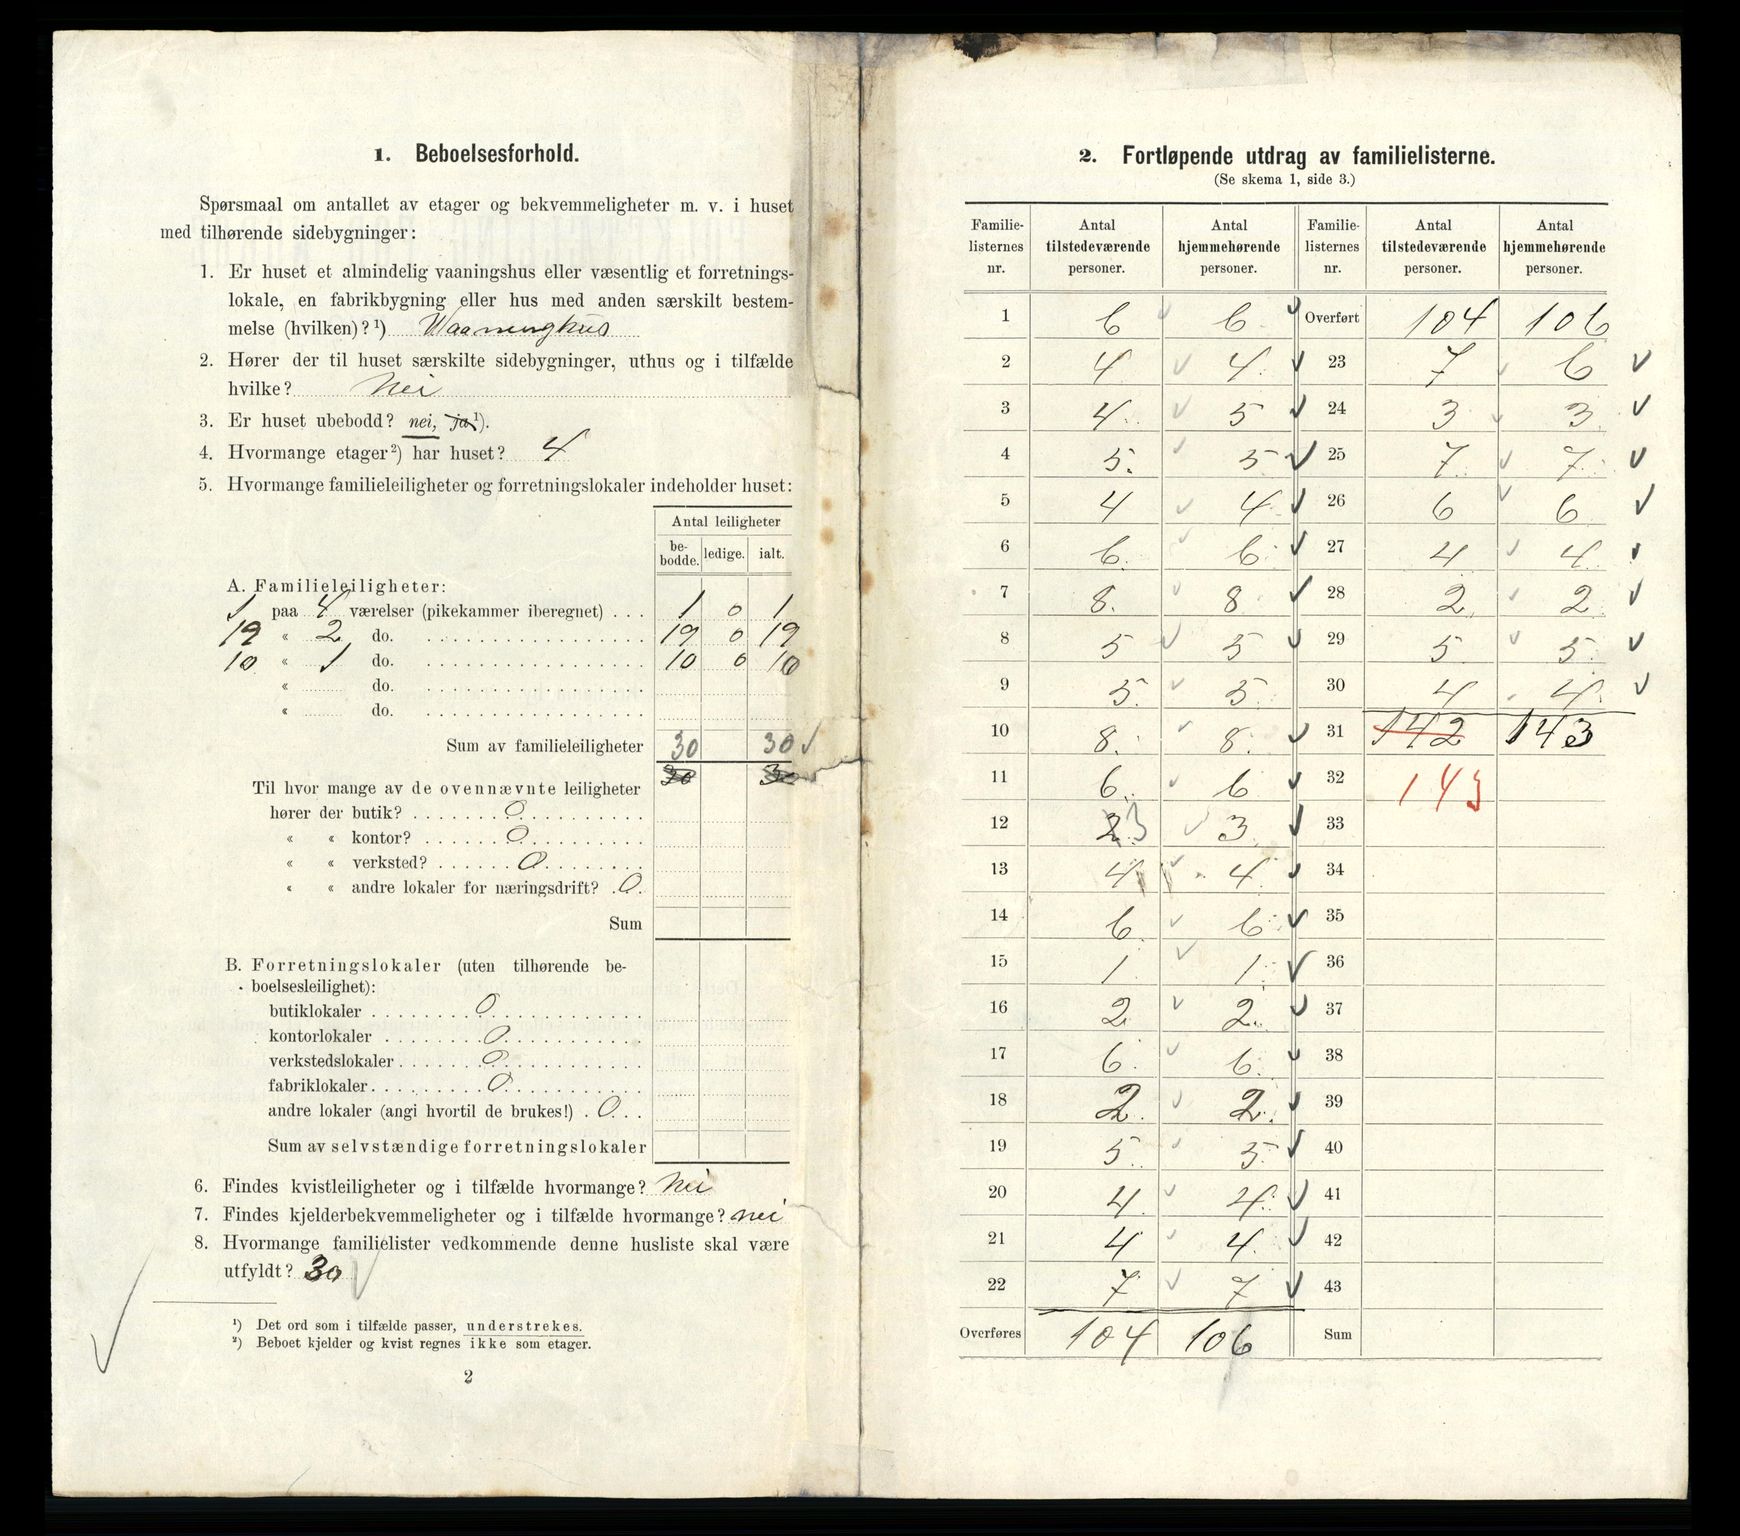 1. Beboelsesforhold.
Spørsmaal om antallet av etager og bekvemmeligheter m. v. i huset
med tilhørende sidebygninger:
1. Er huset et almindelig vaaningshus eller væsentlig et forretnings-
lokale, en fabrikbygning eller hus med anden særskilt bestem-
melse (hvilken)? ¹) Vaaningshus
2. Hører der til huset særskilte sidebygninger, uthus og i tilfælde
hvilke? Nei
3. Er huset ubebodd? nei, ja ¹).
4. Hvormange etager ²) har huset? 4
5. Hvormange familieleiligheter og forretningslokaler indeholder huset:
Antal leiligheter
be-bodde. ledige. ialt.
A. Familieleiligheter:
1 paa 4 værelser (pikekammer iberegnet) . . . 1 0 1
19 « 2 do. 19 0 19
10 « 1 do. 10 0 10
« do.
« do.
Sum av familieleiligheter 30 30 ✓
30 30
Til hvor mange av de ovennævnte leiligheter
hører der butik? 0
« « kontor? 0
« « verksted? 0
« « andre lokaler for næringsdrift? 0
Sum
B. Forretningslokaler (uten tilhørende be-
boelsesleilighet):
butiklokaler 0
kontorlokaler 0
verkstedslokaler 0
fabriklokaler 0
andre lokaler (angi hvortil de brukes!) 0
Sum av selvstændige forretningslokaler
6. Findes kvistleiligheter og i tilfælde hvormange? Nei
7. Findes kjelderbekvemmeligheter og i tilfælde hvormange? nei
8. Hvormange familielister vedkommende denne husliste skal være
utfyldt? 30
¹) Det ord som i tilfælde passer, understrekes.
²) Beboet kjelder og kvist regnes ikke som etager.
2
2. Fortløpende utdrag av familielisterne.
(Se skema 1, side 3.)
Familie-listernes nr. Antal tilstedeværende personer. Antal hjemmehørende personer. Familie-listernes nr. Antal tilstedeværende personer. Antal hjemmehørende personer.
1 6 6 Overført 104 106
2 4 4 23 7 6
3 4 5 24 3 3
4 5 5 25 7 7
5 4 4 26 6 6
6 6 6 27 4 4
7 8 8 28 2 2
8 5 5 29 5 5
9 5 5 30 4 4
10 8 8 31 142 143
11 6 6 32 143
12 2 3 3 33
13 4 4 34
14 6 6 35
15 1 1 36
16 2 2 37
17 6 6 38
18 2 2 39
19 5 5 40
20 4 4 41
21 4 4 42
22 7 7 43
Overføres 104 106 Sum